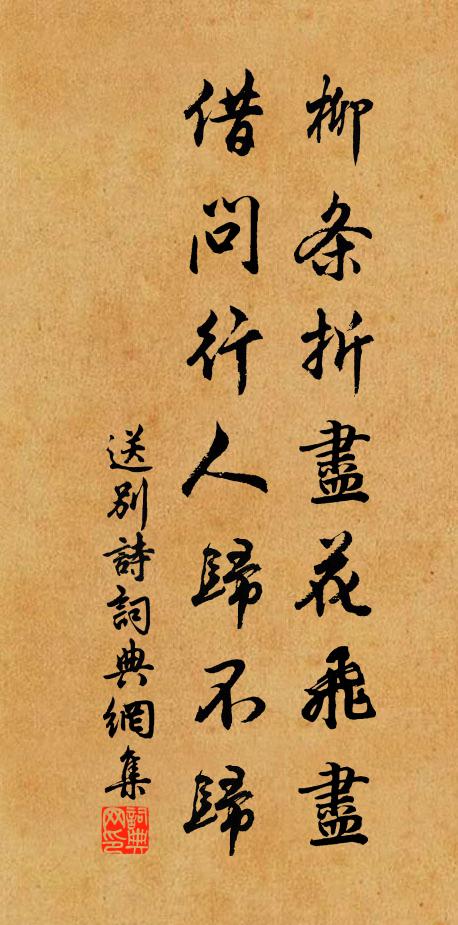 柳条折盡花飛盡
借問行人歸不歸
送别詩詞典網集
詞典网印